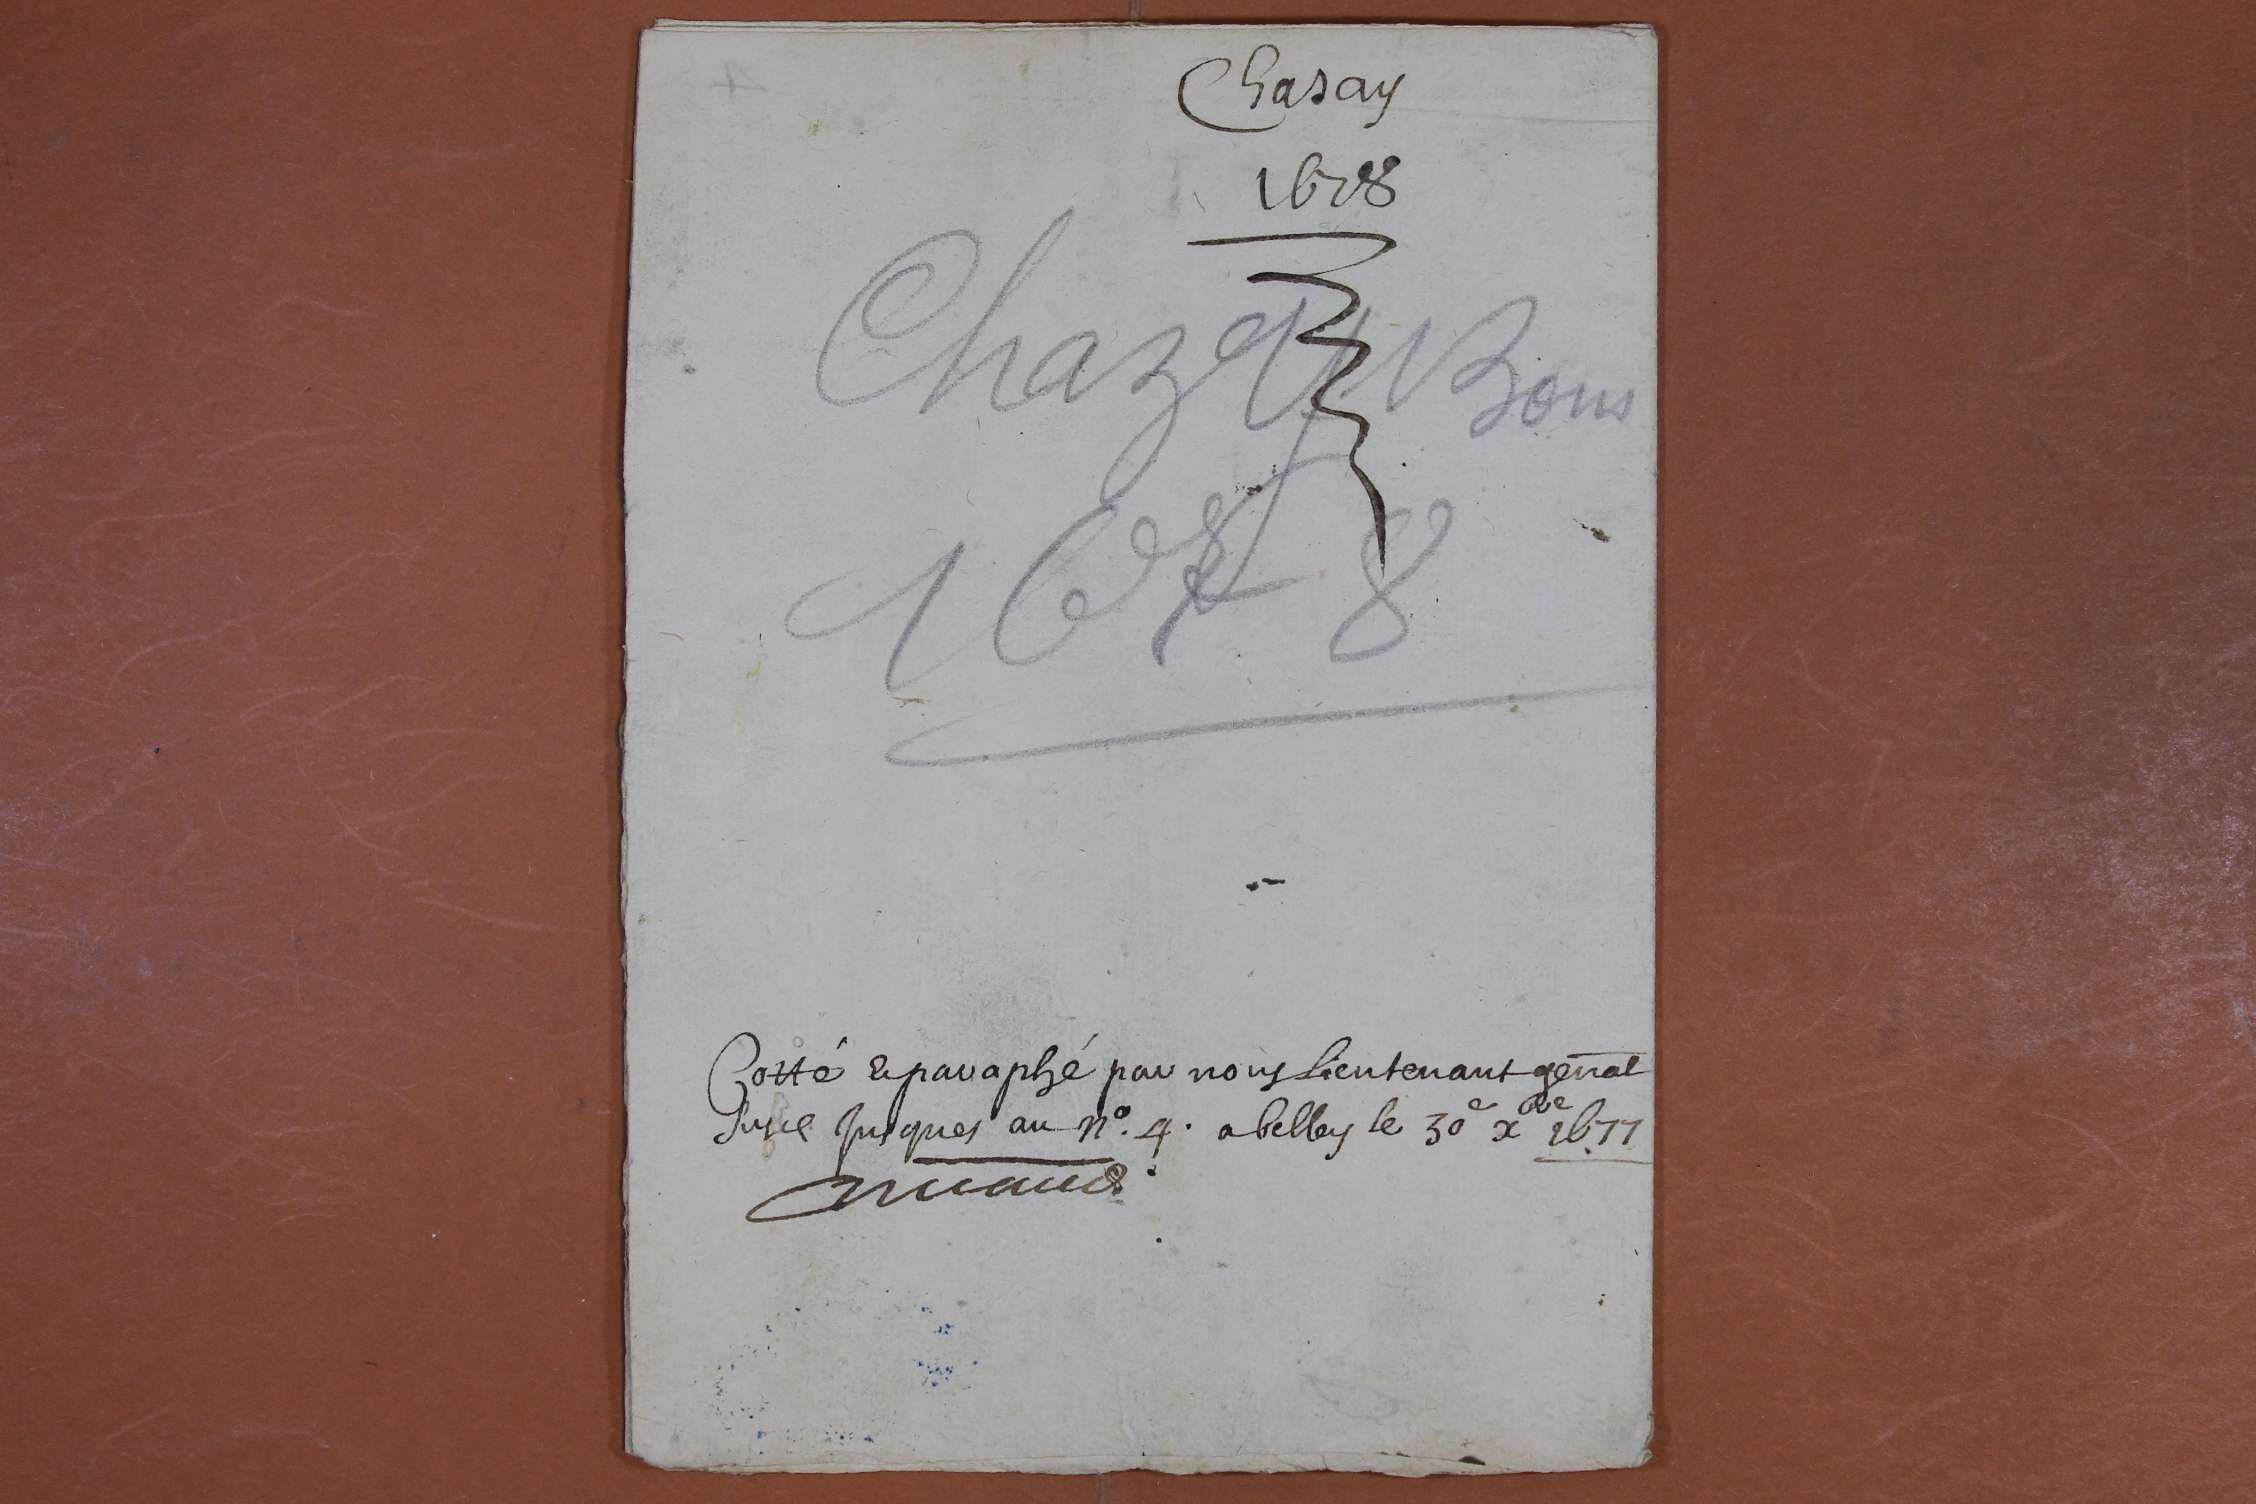 Chasay
1678
Chazey Bons
1678
Cotté & paraphé par nous lieutenant genal
Jusques au n°. 4. a belley le 30e xbre 1677